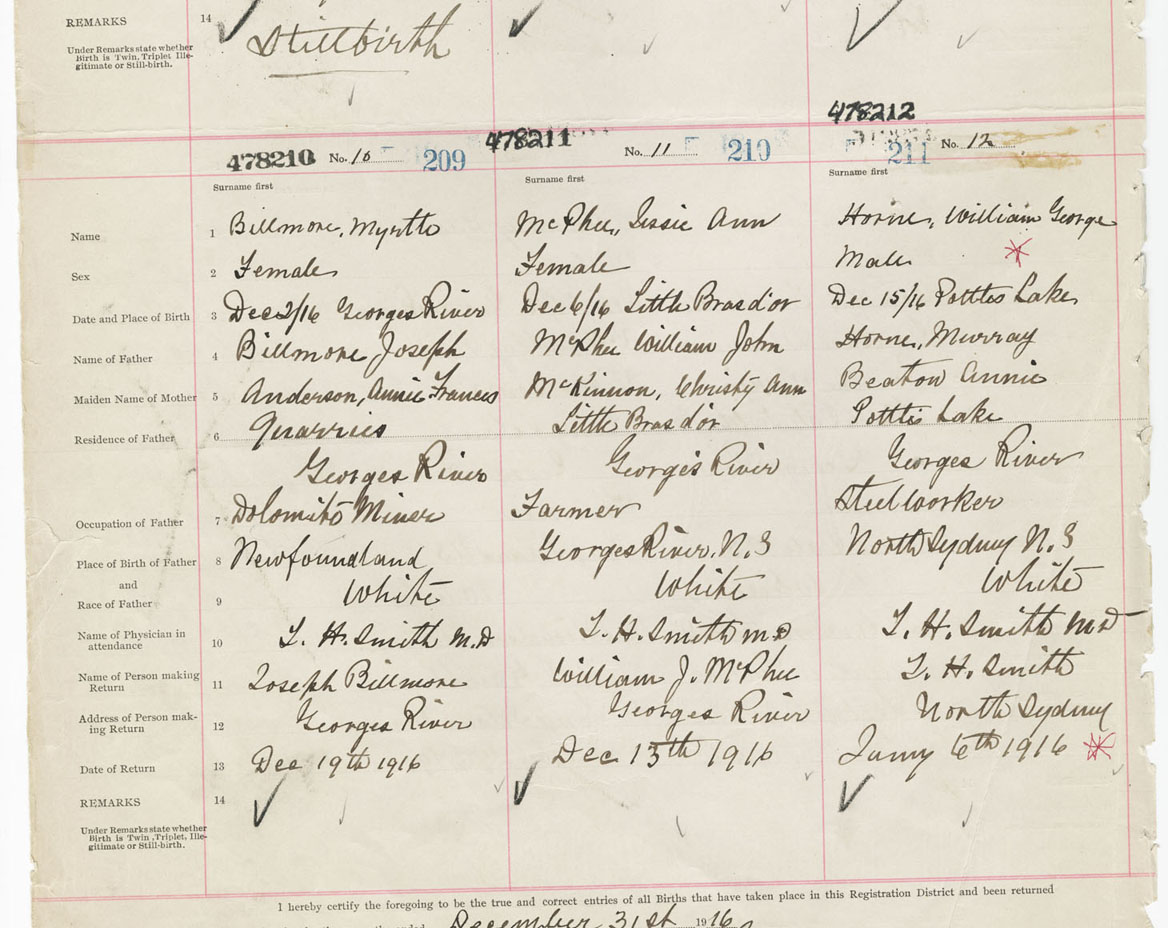 REMARKS 14
Stillbirth
Under Remarks state whether
Birth is Twin, Triplet, Ille-
gitimate or Still-birth.
478210 No. 10 209 478211 No. 11 210 478212 211 No. 12
Surname first Surname first Surname first
Name 1 Billmore, Myrtle McPhee, Jessie Ann Horne, William George
Sex 2 Female Female Male
Date and Place of Birth 3 Dec 2/16 Georges River Dec 6/16 Little Bras d'or Dec 15/16 Pottles Lake
Name of Father 4 Billmore Joseph McPhee William John Horne, Murray
Maiden Name of Mother 5 Anderson, Annie Frances McKinnon, Christy Ann Beaton Annie
Residence of Father 6 Quarries Little Bras d'or Pottles Lake
Georges River Georges River Georges River
Occupation of Father 7 Dolomite Miner Farmer Steelworker
Place of Birth of Father 8 Newfoundland Georges River, N.S North Sydney N.S
and
Race of Father 9 White White White
Name of Physician in
attendance 10 L. H. Smith M.D L. H. Smith M.D L. H. Smith M.D
Name of Person making
Return 11 Joseph Billmore William J. McPhee L. H. Smith
Address of Person mak-
ing Return 12 Georges River Georges River North Sydney
Date of Return 13 Dec 19th 1916 Dec 13th 1916 Jany 6th 1916
REMARKS 14
Under Remarks state whether
Birth is Twin, Triplet, Ille-
gitimate or Still-birth.
I hereby certify the foregoing to be the true and correct entries of all Births that have taken place in this Registration District and been returned
December 31st 1916